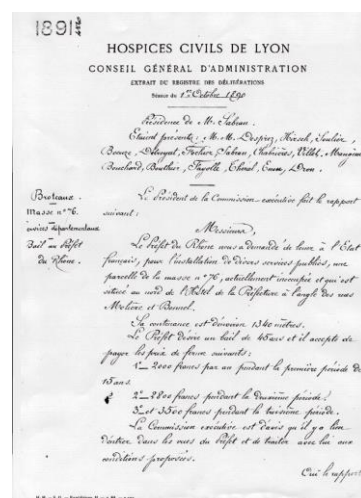 1891
HOSPICES CIVILS DE LYON
CONSEIL GÉNÉRAL D'ADMINISTRATION
EXTRAIT DU REGISTRE DES DÉLIBÉRATIONS
Séance du 1er Octobre 1890
Présidence de M. Sabran
Étaient présents : M. M. Desprez, Hirsch, Soulier,
Sabran, Chabrières, Villot, Mangini
Bouchard, Bouthier, Fayolle,
Brotteaux
Masse n° 76.
services départementaux
Bail au Préfet
du Rhône
Le Président de la Commission exécutive fait le rapport
suivant :
Messieurs,
Le Préfet du Rhône nous a demandé de louer à l'État
français, pour l'installation de divers services publics, une
parcelle de la masse n° 76, actuellement inoccupée et qui est
située au nord de l'Hôtel de la Préfecture à l'angle des rues
Molière et Bonnel.
Sa contenance est d'environ 1340 mètres.
Le Préfet désire un bail de 45 ans et il accepte de
payer les prix de ferme suivants :
1° 2000 francs par an pendant la première période de
15 ans.
2° 2800 francs pendant la deuxième période.
3° et 3500 francs pendant la troisième période.
La Commission exécutive est d'avis qu'il y a lieu
d'entrer dans les vues du Préfet et de traiter avec lui aux
conditions proposées.
Ouï le rapport